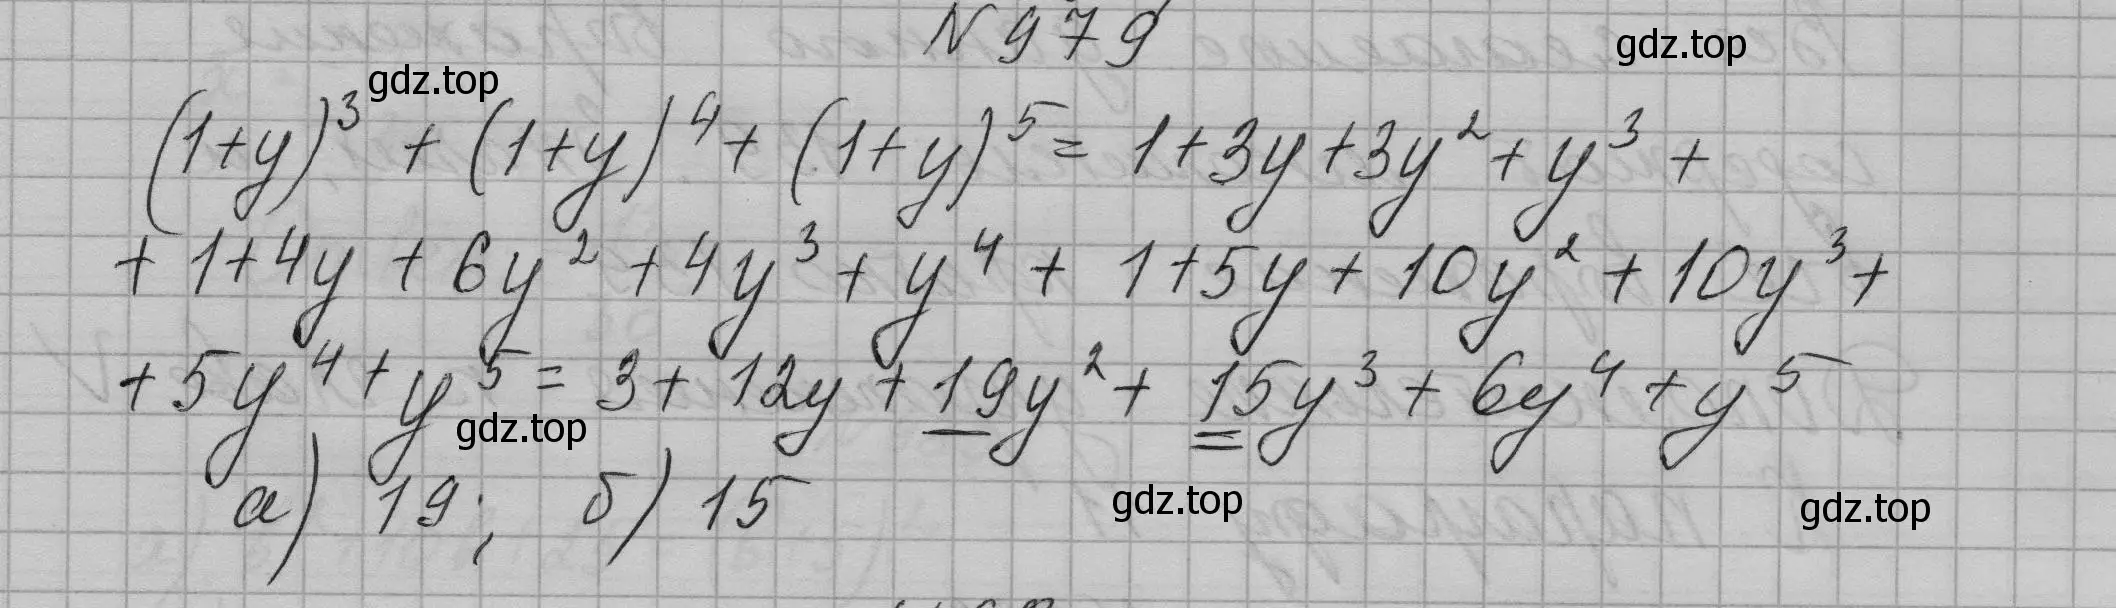 N 979
gdz.top
gdz.top
(1+y)³ + (1+y)⁴ + (1+y)⁵ = 1+3y+3y²+y³ +
+ 1+4y + 6y² + 4y³ + y⁴ + 1+5y + 10y² + 10y³ +
+ 5y⁴ + y⁵ = 3 + 12y + 19y² + 15y³ + 6y⁴ + y⁵
gdz.top
а) 19; б) 15
gdz.top
gdz.top